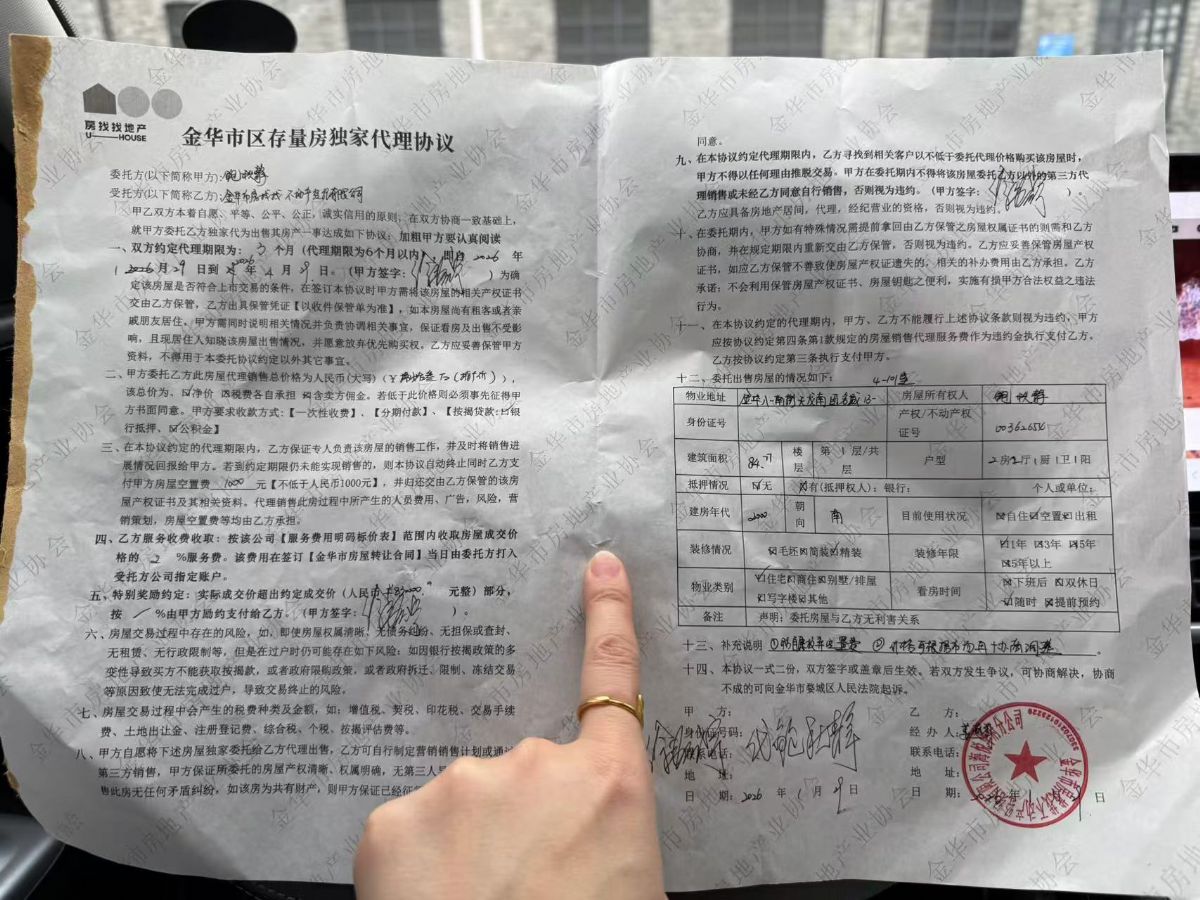 房找找地产
U——HOUSE
金华市区存量房独家代理协议
委托方(以下简称甲方):
受托方(以下简称乙方):
甲乙双方本着自愿、平等、公平、公正，诚实信用的原则，在双方协商一致基础上，
就甲方委托乙方独家代为出售其房产一事达成如下协议：加粗甲方要认真阅读
一、双方约定代理期限为：3 个月（代理期限为6个月以内），即自 2026 年
月 29 日到 年 4 月 29 日。（甲方签字： ）为确
定该房屋是否符合上市交易的条件，在签订本协议时甲方需将该房屋的相关产权证书
交由乙方保管，乙方出具保管凭证【以收件保管单为准】，如本房屋尚有租客或者亲
戚朋友居住，甲方需同时说明相关情况并负责协调相关事宜，保证看房及出售不受影
响，且现居住人知晓该房屋出售情况，并愿意放弃优先购买权。乙方应妥善保管甲方
资料，不得用于本委托协议约定以外其它事宜。
二、甲方委托乙方此房屋代理销售总价格为人民币(大写)（￥ ），
该总价为、☑净价 ☒税费各自承担 ☒含卖方佣金。若低于此价格则必须事先征得甲
方书面同意。甲方要求收款方式：【一次性收费】、【分期付款】、【按揭贷款:口银
行抵押、☑公积金】
三、在本协议约定的代理期限内，乙方保证专人负责该房屋的销售工作，并及时将销售进
展情况回报给甲方。若到约定期限仍未能实现销售的，则本协议自动终止同时乙方支
付甲方房屋空置费 1000 元【不低于人民币1000元】，并归还交由乙方保管的该房
屋产权证书及其相关资料。代理销售此房过程中所产生的人员费用、广告，风险，营
销策划，房屋空置费等均由乙方承担。
四、乙方服务收费收取：按该公司【服务费用明码标价表】范围内收取房屋成交价
格的 2 %服务费。该费用在签订【金华市房屋转让合同】当日由委托方打入
受托方公司指定账户。
五、特别奖励约定：实际成交价超出约定成交价（人民币 元整）部分，
按 / %由甲方励约支付给乙方。（甲方签字： ）。
六、房屋交易过程中存在的风险，如、即使房屋权属清晰、无债务纠纷、无担保或查封、
无租赁、无行政限制等，但是在过户时仍可能存在如下风险：如因银行按揭政策的多
变性导致买方不能获取按揭款，或者政府限购政策，或者政府拆迁、限制、冻结交易
等原因致使无法完成过户，导致交易终止的风险。
七、房屋交易过程中会产生的税费种类及金额，如：增值税、契税、印花税、交易手续
费、土地出让金、注册登记费、综合税、个税、按揭评估费等。
八、甲方自愿将下述房屋独家委托给乙方代理出售，乙方可自行制定营销销售计划或通过
第三方销售，甲方保证所委托的房屋产权清晰、权属明确，无第三人
售此房无任何矛盾纠纷，如该房为共有财产，则甲方保证已经征
同意。
九、在本协议约定代理期限内，乙方寻找到相关客户以不低于委托代理价格购买该房屋时，
甲方不得以任何理由推脱交易。甲方在委托期内不得将该房屋委托乙方以外的第三方代
理销售或未经乙方同意自行销售，否则视为违约。（甲方签字： ）。
乙方应具备房地产居间，代理，经纪营业的资格，否则视为违约。
十、在委托期内，甲方如有特殊情况需提前拿回由乙方保管之房屋权属证书的则需和乙方
协商，并在规定期限内重新交由乙方保管，否则视为违约。乙方应善保管房屋产权
证书，如应乙方保管不善致使房屋产权证遗失的，相关的补办费用由乙方承担。乙方
承诺：不会利用保管房屋产权证书、房屋钥匙之便利，实施有损甲方合法权益之违法
行为。
十一、在本协议约定的代理期内，甲方、乙方不能履行上述协议条款则视为违约、甲方
应按协议约定第四条第1款规定的房屋销售代理服务费作为违约金执行支付乙方。
乙方按协议约定第三条执行支付甲方。
十二、委托出售房屋的情况如下：
物业地址 房屋所有权人
身份证号 产权/不动产权证号 00362656
建筑面积 84.71 楼层 第 1 层/共 层 户型 2房2厅1厨1卫1阳
抵押情况 ☑无 ☒有(抵押权人)：银行： 个人或单位：
建房年代 2000 朝向 南 目前使用状况 ☒自住☑空置☒出租
装修情况 ☒毛坯☒简装☒精装 装修年限 ☑1年 ☒3年☒5年 ☒5年以上
物业类别 ☑住宅☒商住☒别墅/排屋 ☒写字楼☒其他 看房时间 ☒下班后 ☒双休日 ☑随时 ☒提前预约
备注 声明：委托房屋与乙方无利害关系
十三、补充说明
十四、本协议一式二份，双方签字或盖章后生效。若双方发生争议，可协商解决，协商
不成的可向金华市婺城区人民法院起诉。
甲 方： 乙 方：
身份证号码： 经 办 人：
联系电话： 联系电话：
地 址： 地 址：
日 期：2026 年 1 月 29 日 日 期： 年 1 月 日
金华市房地产业协会